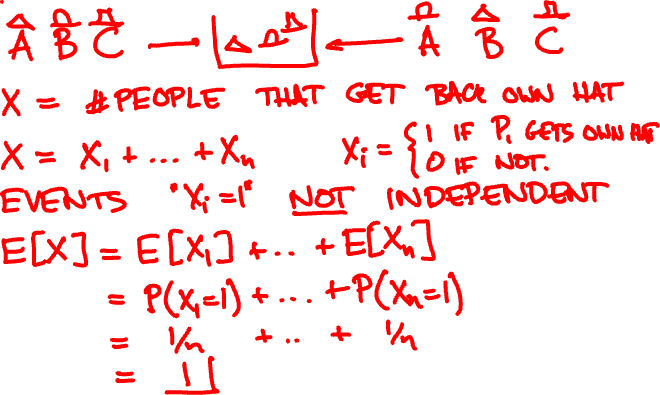 A B C A B C
X = # PEOPLE THAT GET BACK OWN HAT
X = X₁ + ... + Xₙ Xᵢ = { 1 IF Pᵢ GETS OWN HAT
0 IF NOT.
EVENTS "Xᵢ=1" NOT INDEPENDENT
E[X] = E[X₁] + .. + E[Xₙ]
= P(X₁=1) + ... + P(Xₙ=1)
= 1/n + .. + 1/n
= 1